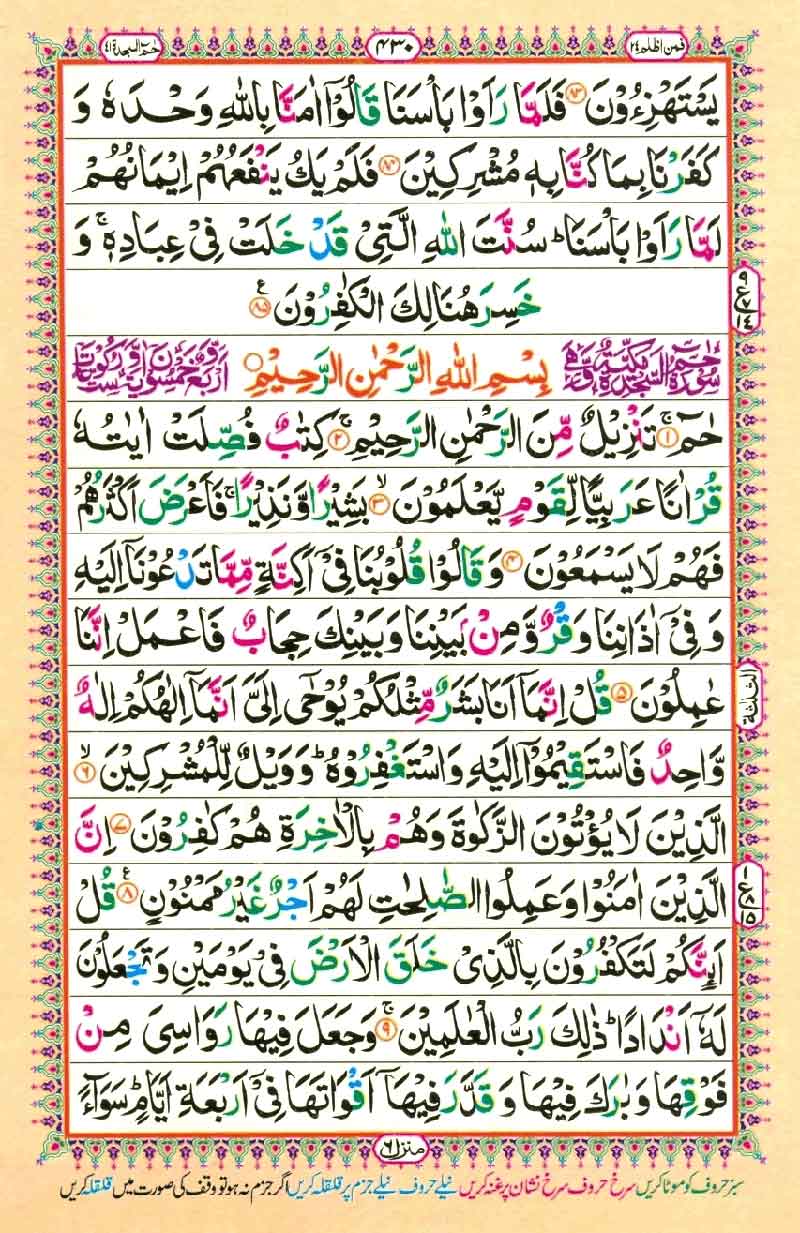 فمن اظلم ٢٤
٤٣٠
حٰم السجدة ٤١
يَسْتَهْزِءُوْنَ ۝٨٣ فَلَمَّا رَاَوْا بَاْسَنَا قَالُوْٓا اٰمَنَّا بِاللّٰهِ وَحْدَهٗ وَ
كَفَرْنَا بِمَا كُنَّا بِهٖ مُشْرِكِيْنَ ۝٨٤ فَلَمْ يَكُ يَنْفَعُهُمْ اِيْمَانُهُمْ
لَمَّا رَاَوْا بَاْسَنَا ؕ سُنَّتَ اللّٰهِ الَّتِيْ قَدْ خَلَتْ فِيْ عِبَادِهٖ ۚ وَ
خَسِرَ هُنَالِكَ الْكٰفِرُوْنَ ۝٨٥
سُوْرَةُ حٰمٓ السَّجْدَةِ مَكِّيَّةٌ وَّهِيَ
بِسْمِ اللّٰهِ الرَّحْمٰنِ الرَّحِيْمِ
اَرْبَعٌ وَّخَمْسُوْنَ اٰيَةً وَّسِتُّ رُكُوْعَاتٍ
حٰمٓ ۝١ۚ تَنْزِيْلٌ مِّنَ الرَّحْمٰنِ الرَّحِيْمِ ۝٢ۚ كِتٰبٌ فُصِّلَتْ اٰيٰتُهٗ
قُرْاٰنًا عَرَبِيًّا لِّقَوْمٍ يَّعْلَمُوْنَ ۝٣ۙ بَشِيْرًا وَّنَذِيْرًا ۚ فَاَعْرَضَ اَكْثَرُهُمْ
فَهُمْ لَا يَسْمَعُوْنَ ۝٤ وَقَالُوْا قُلُوْبُنَا فِيْٓ اَكِنَّةٍ مِّمَّا تَدْعُوْنَآ اِلَيْهِ
وَفِيْٓ اٰذَانِنَا وَقْرٌ وَّمِنْۢ بَيْنِنَا وَبَيْنِكَ حِجَابٌ فَاعْمَلْ اِنَّنَا
عٰمِلُوْنَ ۝٥ قُلْ اِنَّمَآ اَنَا بَشَرٌ مِّثْلُكُمْ يُوْحٰٓى اِلَيَّ اَنَّمَآ اِلٰهُكُمْ اِلٰهٌ
وَّاحِدٌ فَاسْتَقِيْمُوْٓا اِلَيْهِ وَاسْتَغْفِرُوْهُ ؕ وَوَيْلٌ لِّلْمُشْرِكِيْنَ ۝٦ۙ
الَّذِيْنَ لَا يُؤْتُوْنَ الزَّكٰوةَ وَهُمْ بِالْاٰخِرَةِ هُمْ كٰفِرُوْنَ ۝٧ اِنَّ
الَّذِيْنَ اٰمَنُوْا وَعَمِلُوا الصّٰلِحٰتِ لَهُمْ اَجْرٌ غَيْرُ مَمْنُوْنٍ ۝٨ قُلْ
اَئِنَّكُمْ لَتَكْفُرُوْنَ بِالَّذِيْ خَلَقَ الْاَرْضَ فِيْ يَوْمَيْنِ وَتَجْعَلُوْنَ
لَهٗٓ اَنْدَادًا ؕ ذٰلِكَ رَبُّ الْعٰلَمِيْنَ ۝٩ۚ وَجَعَلَ فِيْهَا رَوَاسِيَ مِنْ
فَوْقِهَا وَبٰرَكَ فِيْهَا وَقَدَّرَ فِيْهَآ اَقْوَاتَهَا فِيْٓ اَرْبَعَةِ اَيَّامٍ ؕ سَوَآءً
منزل ٦
سبز حروف کو موٹا کریں سرخ حروف سرخ نشان پر غنہ کریں نیلے حروف نیلے جزم پر قلقلہ کریں اگر جزم نہ ہو تو وقف کی صورت میں قلقلہ کریں